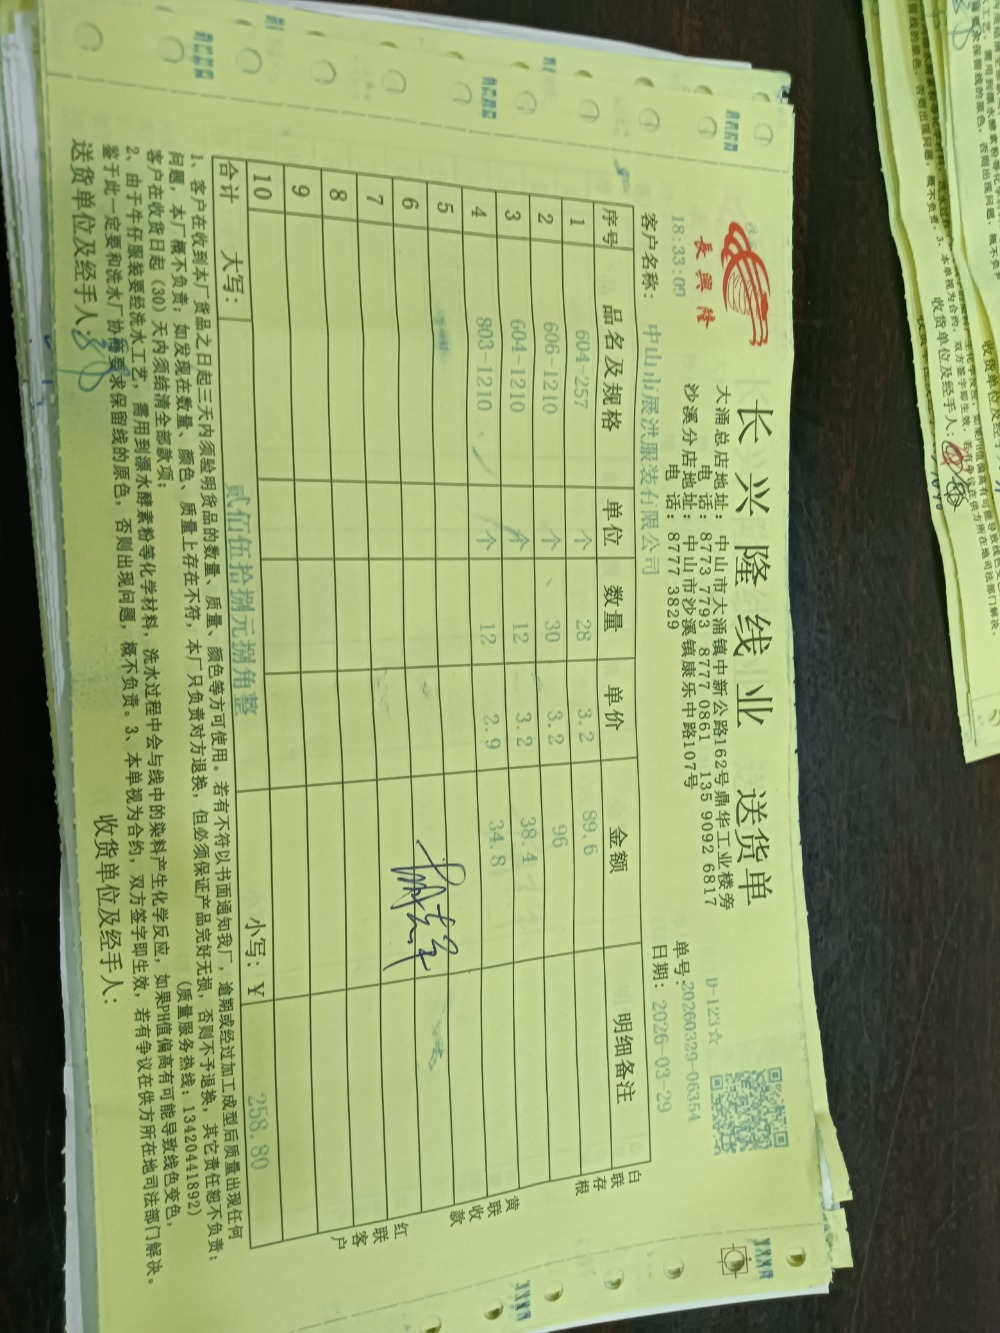 长兴隆线业 送货单
長興隆
大涌总店地址：中山市大涌镇中新公路162号鼎华工业楼旁
电话：8773 7793 8777 0861 135 9092 6817
沙溪分店地址：中山市沙溪镇康乐中路107号
电话：8777 3829
D-123☆
单号：20260329-06354
日期：2026-03-29
18:33:09
客户名称：中山市展洪服装有限公司
序号 品名及规格 单位 数量 单价 金额 明细备注
1 604-257 个 28 3.2 89.6
2 606-1210 个 30 3.2 96
3 604-1210 个 12 3.2 38.4
4 803-1210 个 12 2.9 34.8
5
6
7
8
9
10
合计 大写：贰佰伍拾捌元捌角整 小写：￥ 258.80
白联存根
黄联收款
红联客户
1、客户在收到本厂货品之日起三天内须验明货品的数量、质量、颜色等方可使用。若有不符以书面通知我厂，逾期或经过加工成型后质量出现任何
问题，本厂概不负责；如发现在数量、颜色、质量上存在不符，本厂只负责对方退换，但必须保证产品完好无损，否则不予退换，其它责任恕不负责；
客户在收货日起（30）天内须结清全部款项； （质量服务热线：13420441892）
2、由于牛仔服装要经洗水工艺，需用到漂水酵素粉等化学材料，洗水过程中会与线中的染料产生化学反应，如果PH值偏高有可能导致线色变色，
鉴于此一定要和洗水厂协商要求保留线的原色，否则出现问题，概不负责。3、本单视为合约，双方签字即生效，若有争议在供方所在地司法部门解决。
送货单位及经手人： 收货单位及经手人：
收货单位及经手人：